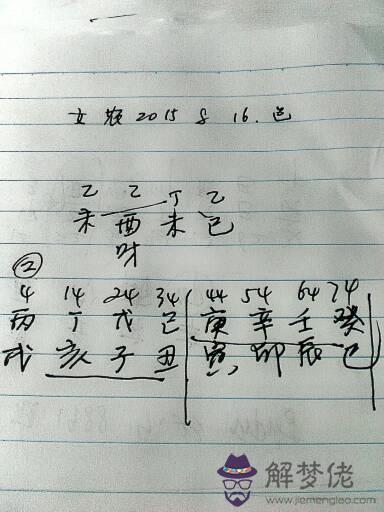 女 2015 8 16.巳
乙 乙 丁 乙
未 酉 未 巳
②
4 14 24 34 44 54 64 74
丙 丁 戊 己 庚 辛 壬 癸
戌 亥 子 丑 寅 卯 辰 巳
解梦佬
www.jiemenglao.com